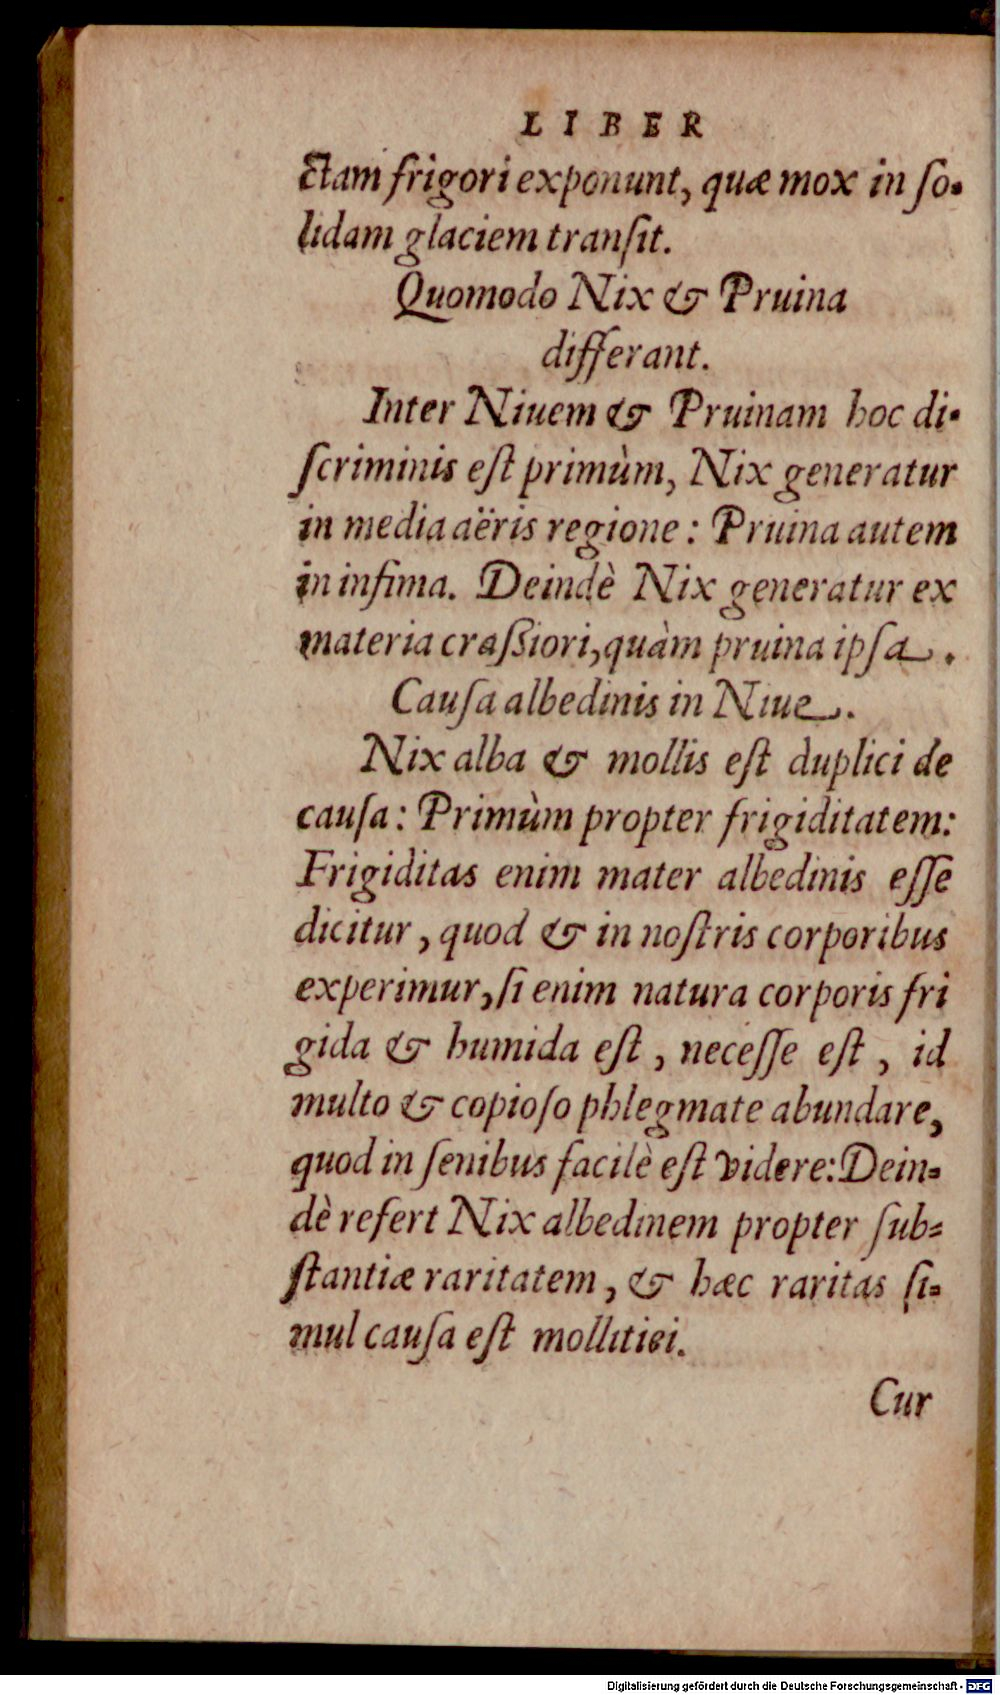 LIBER
ctam frigori exponunt, quæ mox in ſo-
lidam glaciem tranſit.
Quomodo Nix & Pruina
differant.
Inter Niuem & Pruinam hoc di-
ſcriminis eſt primùm, Nix generatur
in media aëris regione: Pruina autem
in infima. Deindè Nix generatur ex
materia craſsiori, quàm pruina ipſa.
Cauſa albedinis in Niue.
Nix alba & mollis eſt duplici de
cauſa: Primùm propter frigiditatem:
Frigiditas enim mater albedinis eſſe
dicitur, quod & in noſtris corporibus
experimur, ſi enim natura corporis fri
gida & humida eſt, neceſſe eſt, id
multo & copioſo phlegmate abundare,
quod in ſenibus facilè eſt videre: Dein-
dè refert Nix albedinem propter ſub-
ſtantiæ raritatem, & hæc raritas ſi-
mul cauſa eſt mollitiei.
Cur
Digitalisierung gefördert durch die Deutsche Forschungsgemeinschaft - DFG